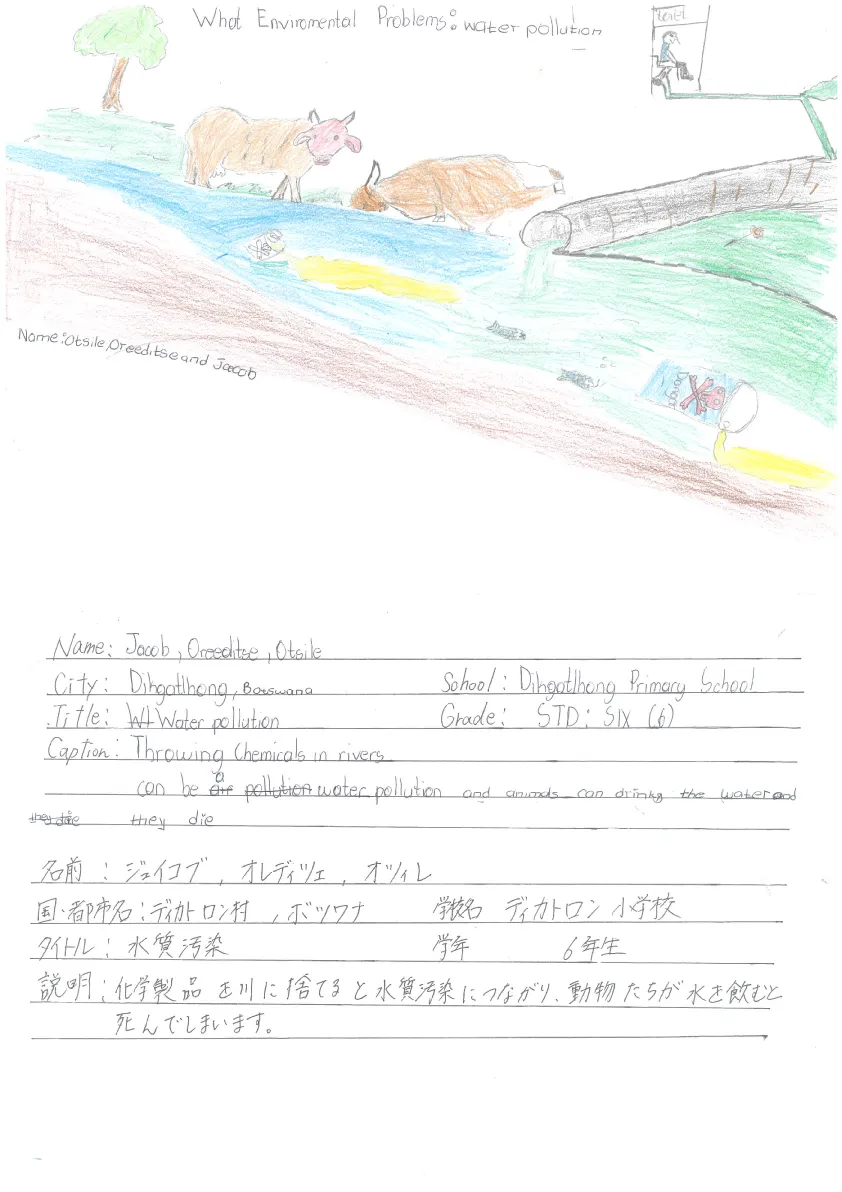 What Enviromental Problems: water pollution
toilet
Name: Otsile, Oreeditse and Jacob
Danger
Name: Jacob, Oreeditse, Otsile
City: Dihgatlhong, Botswana School: Dihgatlhong Primary School
Title: Wt Water pollution Grade: STD: SIX (6)
Caption: Throwing Chemicals in rivers
can be air a pollution water pollution and animals can drinky the water and
they die they die
名前 : ジェイコブ , オレディツェ , オツィレ
国・都市名 : ディカトロン村 , ボツワナ 学校名 ディカトロン 小学校
タイトル : 水質汚染 学年 6年生
説明 : 化学製品を川に捨てると水質汚染につながり、動物たちが水を飲むと
死んでしまいます。